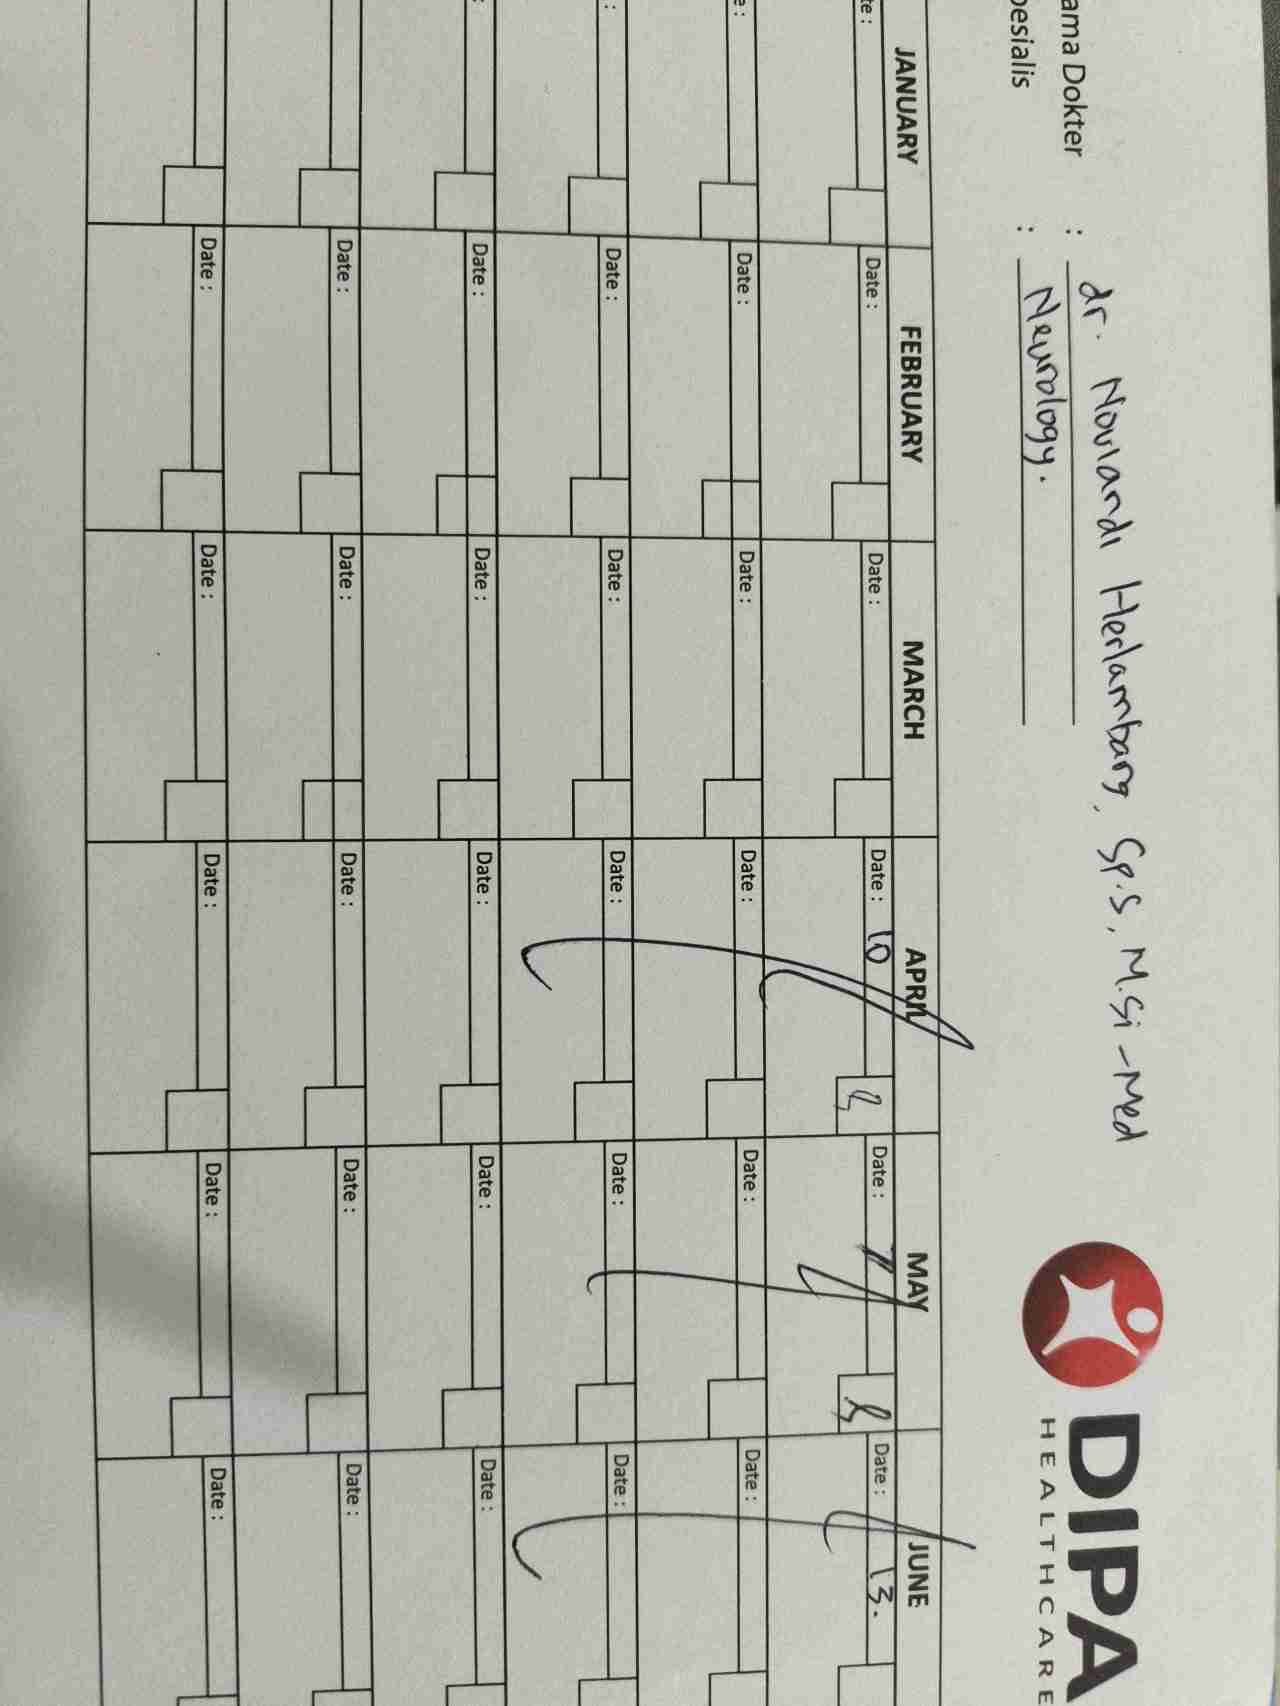 ama Dokter : dr. Noviandi Herlambang, Sp.S, M.Si-Med
pesialis : Neurology.
DIPA
HEALTHCARE
JANUARY FEBRUARY MARCH APRIL MAY JUNE
te : Date : Date : Date : 10 Date : 7 Date : 13.
e : Date : Date : Date : Date : Date :
: Date : Date : Date : Date : Date :
: Date : Date : Date : Date : Date :
Date : Date : Date : Date : Date :
Date : Date : Date : Date : Date :